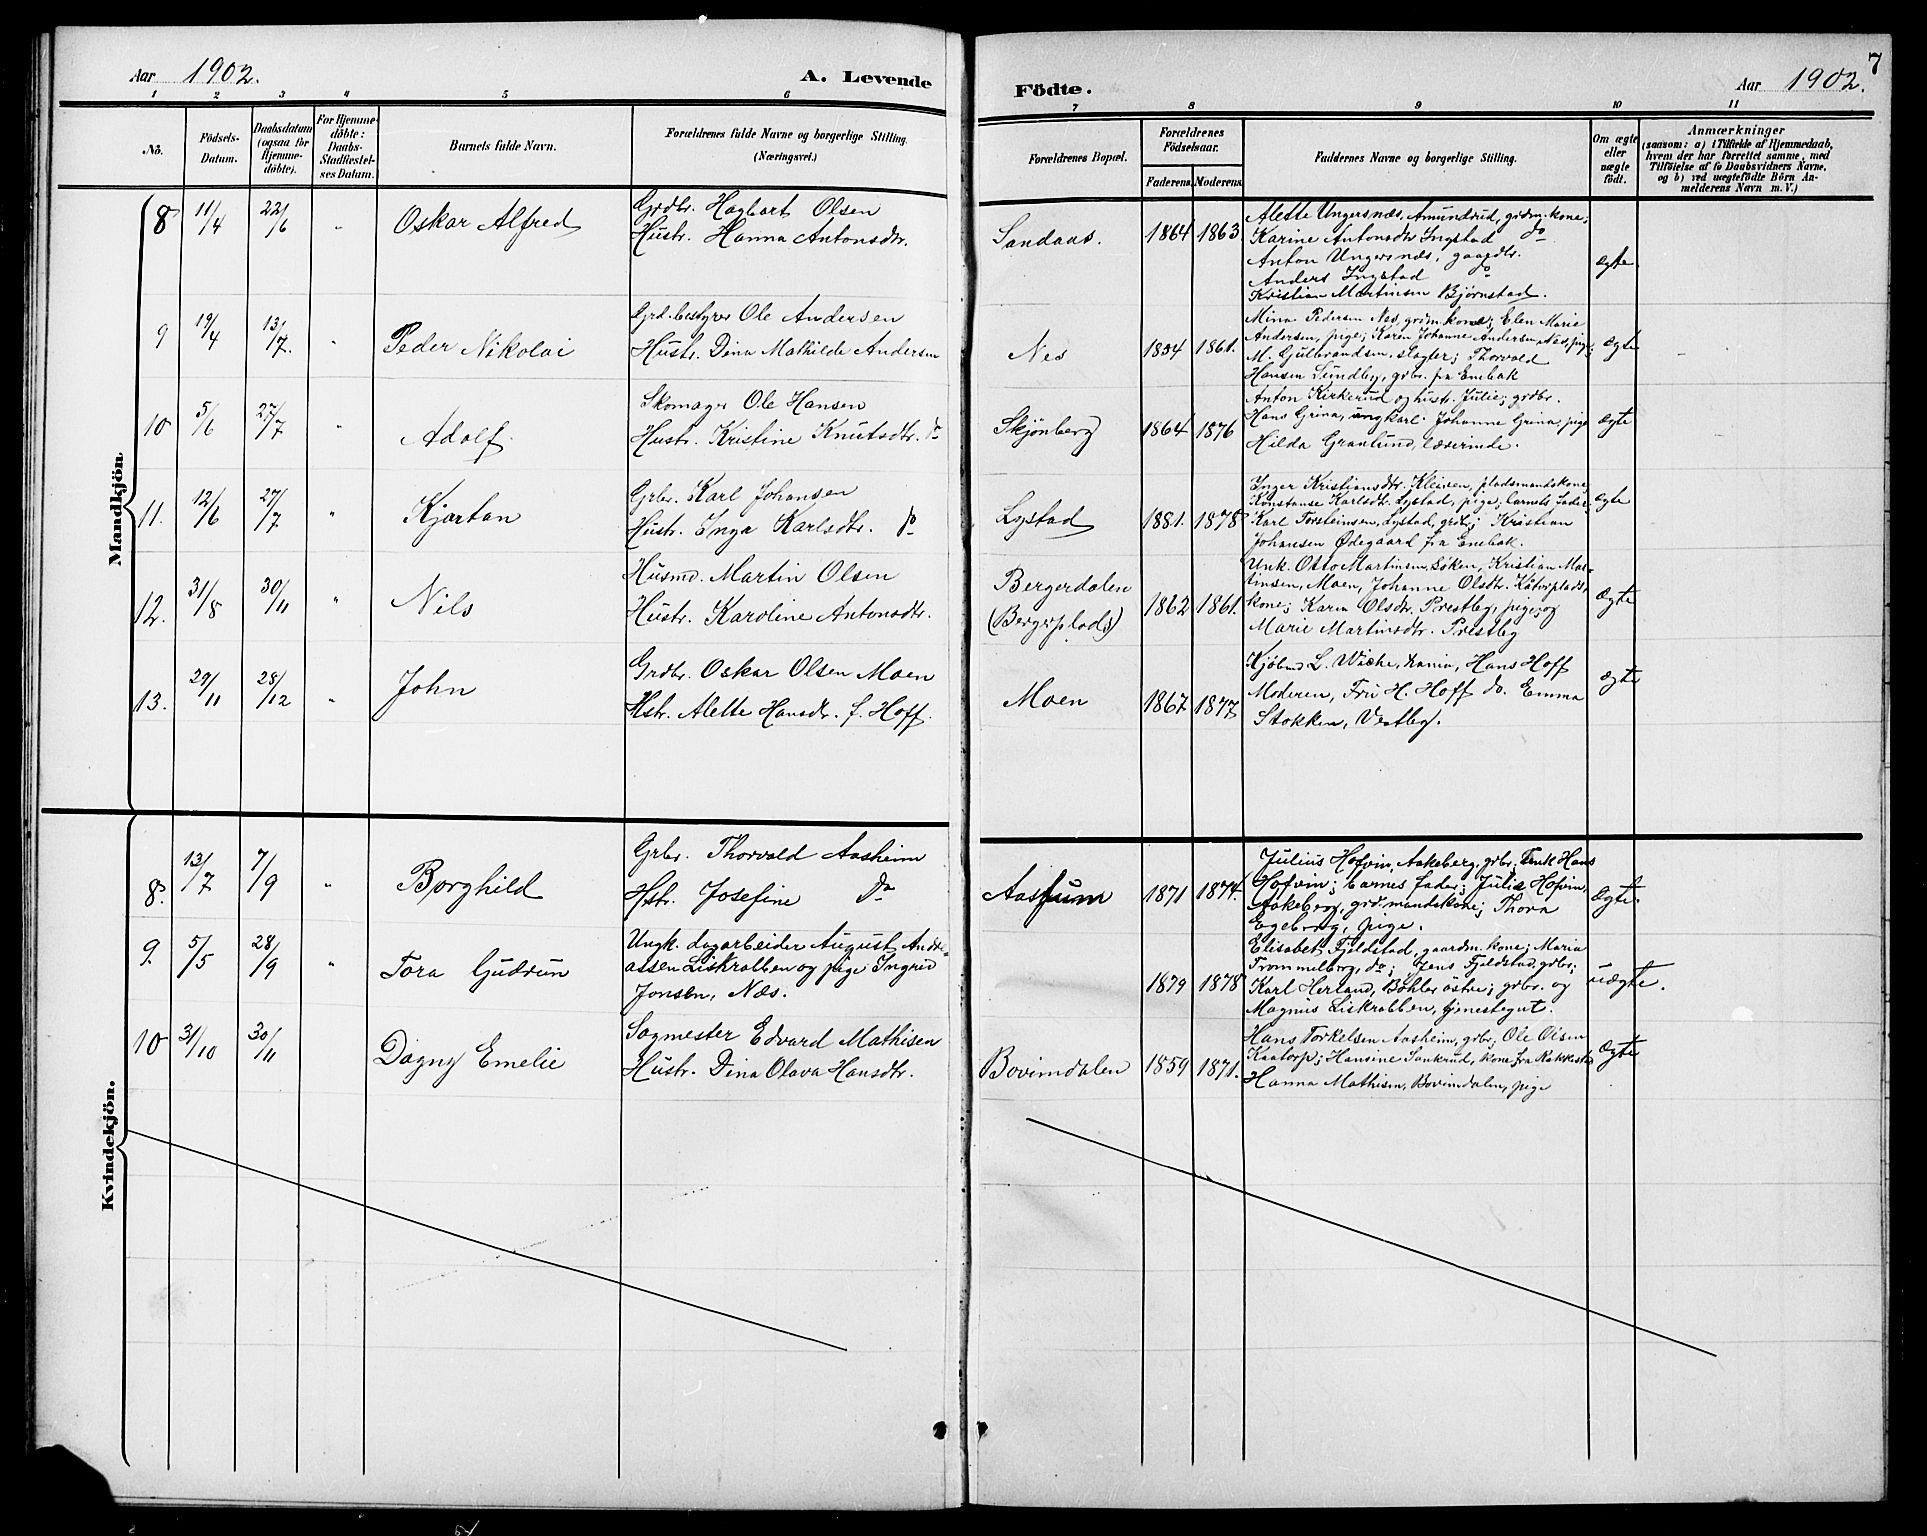 Aar 1902.
A. Levende
1 2 3 4 5 6
No.
Födsels-Datum.
Daabsdatum (ogsaa for Hjemme-döbte).
For Hjemme-döbte: Daabs-Stadfæstel-ses Datum.
Barnets fulde Navn.
Forældrenes fulde Navne og borgerlige Stilling. (Næringsvei.)
Mandkjön
8 11/4 22/6 " Oskar Alfred
Grdbr. Hagbart Olsen
Hustr. Hanna Antonsdtr.
9 19/4 13/7. " Peder Nikolai
Grd.bestyrer Ole Andersen
Hustr. Dina Mathilde Andersen
10 5/6 27/7 " Adolf.
Skomager Ole Hansen
Hustr. Kristine Knutsdtr. do
11. 12/6 27/7 " Kjartan
Grbr. Karl Johansen
Hustr. Inga Karlsdtr. do
12. 31/8 30/11 " Nils
Husmd. Martin Olsen
Hustr. Karoline Antonsdtr.
13. 29/11 28/12 " John
Grdbr. Oskar Olsen Moen
Hstr. Alette Hansdtr. f. Hoff.
Kvindekjön.
8. 13/7 7/9 " Borghild
Grbr. Thorvald Aasheim
Hstr. Josefine do
9. 5/5 28/9 " Tora Gudrun
Ungk. dagarbeider August Andre-
assen Liskrabben og pige Ingrid
Jonsen, Næs.
10 31/10 30/11 Dagny Emelie
Sagmester Edvard Mathisen
Hustr. Dina Olava Hansdtr.
7
Födte.
Aar 1902.
7 8 9 10 11
Forældrenes Bopæl.
Forældrenes Födselsaar.
Faderens Moderens
Faddernes Navne og borgerlige Stilling.
Om ægte eller uægte födt.
Anmærkninger
(saasom: a) i Tilfælde af Hjemmedaab,
hvem der har forrettet samme, med
Tilföielse af to Daabsvidners Navne,
og b) ved uægtefödte Börn An-
melderens Navn m. V.)
Sandaas. 1864 1863.
Alette Ungersnæs, Amundrud, grdm.kone;
Karine Antonsdtr Ingstad do
Anton Ungersnæs, gaardbr.
Anders Ingstad do
Kristian Martinsen Bjørnstad.
ægte.
Nes 1854 1861.
Mina Pedersen Nes, grdm.kone; Elen Marie
Andersen, pige; Karen Johanne Andersen, Nes, pige;
M. Gulbrandsen, slagter; Thorvald
Hansen Sundby, grbr. fra Enebak
ægte
Skjønberg 1864 1876
Anton Kirkerud og hustr. Julie, grdbr.
Hans Grina, ungkarl. Johanne Grina, pige
Hilda Granlund, lærerinde.
ægte
Lystad 1881. 1878
Inger Kristiansdtr. Kleiven, pladsmandskone,
Konstanse Karlsdtr. Lystad, pige; barnets fader;
Karl Torsteinsen, Lystad, grdbr; Kristian
Johansen Ødegaard fra Enebak.
ægte
Bergerdalen
(Bergerplads) 1862 1861.
Unk. Otto Martinsen, Løken, Kristian Mar-
tinsen, Moen, Johanne Olsdtr. plads,
kone; Karin Olsdtr. Prestby, pige; og
Marie Martinsdtr. Prestby
Ægte
Moen 1867 1877
Kjøbmd L. Wiche, Krania, Hans Hoff
Moderen, Fru H. Hoff do. Emma
Stokken, Vestby.
ægte
Aasheim 1871 1874.
Julius Hofvin, Aakeberg, grbr; Enk Hans
Hofvin; barnes fader; Julie Hofvin,
Aakeberg, grd.mandskone; Thora
Egeberg, pige.
Ægte.
1879 1878
Elisabet Fjeldstad, gaardm.kone; Maria
Trommelborg, do; Jens Fjeldstad, grbr;
Karl Herland, Bøhler østre; grbr. og
Magnus Liskrabben, tjenestegut.
uægte.
Bovimdalen 1859 1871.
Hans Torkelsen Aasheim, grbr; Ole Olsen
Kaatorp; Hansine Sankrud, kone fra Rakkestad
Hanna Mathisen, Bovimdalen, pige
Ægte